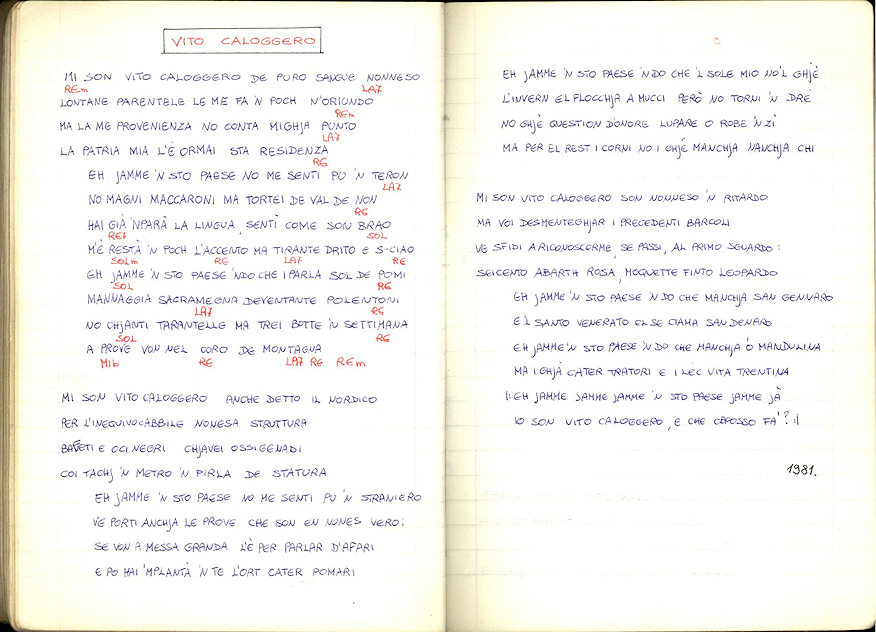 VITO CALOGGERO
MI SON VITO CALOGGERO DE PURO SANGUE NONNESO
REm LA7
LONTANE PARENTELE LE ME FA 'N POCH N'ORIUNDO
REm
MA LA ME PROVENIENZA NO CONTA MIGHJA PUNTO
LA7
LA PATRIA MIA L'È ORMAI STA RESIDENZA
RE
EH JAMME 'N STO PAESE NO ME SENTI PU 'N TERON
LA7
NO MAGNI MACCARONI MA TORTEI DE VAL DE NON
RE
HAI GIÀ 'NPARÀ LA LINGUA, SENTÌ COME SON BRAO
RE7 SOL
M'È RESTÀ 'N POCH L'ACCENTO MA TIRANTE DRITO E S-CIAO
SOLm RE LA7 RE
EH JAMME 'N STO PAESE 'NDO CHE I PARLA SOL DE POMI
SOL RE
MANNAGGIA SACRAMEGNA DEVENTANTE POLENTONI
LA7 RE
NO CHJANTI TARANTELLE MA TREI BOTTE 'N SETTIMANA
SOL RE
A PROVE VON NEL CORO DE MONTAGNA
MIb RE LA7 RE REm
MI SON VITO CALOGGERO ANCHE DETTO IL NORDICO
PER L'INEQUIVOCABBILE NONESA STRUTTURA
BAFETI E OCI NEGRI CHJAVEI OSSIGENADI
COI TACHJ 'N METRO 'N PIRLA DE STATURA
EH JAMME 'N STO PAESE NO ME SENTI PU 'N STRANIERO
VE PORTI ANCHJA LE PROVE CHE SON EN NONES VERO:
SE VON A MESSA GRANDA L'È PER PARLAR D'AFARI
E PO HAI 'MPLANTÀ 'N TE L'ORT CATER POMARI
EH JAMME 'N STO PAESE 'NDO CHE 'L SOLE MIO NO'L GHJÈ
L'INVERN EL FLOCCHJA A MUCCI PERÒ NO TORNI 'N DRÉ
NO GHJÈ QUESTION D'ONORE LUPARE O ROBE 'NZÌ
MA PER EL REST I CORNI NO I GHJÈ MANCHJA NANCHJA CHI
MI SON VITO CALOGGERO SON NONNESO 'N RITARDO
MA VOI DESMENTEGHJAR I PRECEDENTI BARCOLI
VE SFIDI A RICONOSCERME, SE PASSI, AL PRIMO SGUARDO:
SEICENTO ABARTH ROSA, MOQUETTE FINTO LEOPARDO
EH JAMME 'N STO PAESE 'N DO CHE MANCHJA SAN GENNARO
EL SANTO VENERATO EL SE CIAMA SAN DENARO
EH JAMME 'N STO PAESE 'N DO CHE MANCHJA Ò MANDULINA
MA I GHJÀ CATER TRATORI E I LEC VITA TRENTINA
|: EH JAMME JAMME JAMME 'N STO PAESE JAMME JÀ
IO SON VITO CALOGGERO, E CHE CE POSSO FA'? :|
1981.